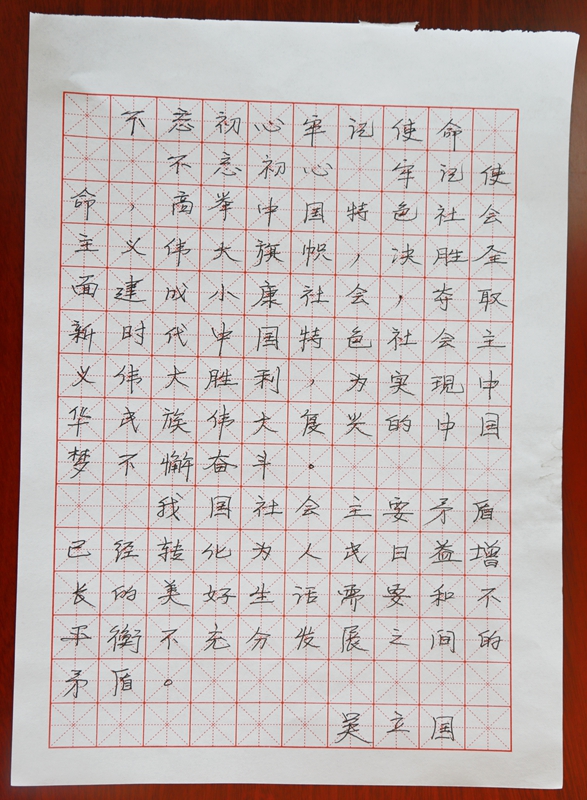 不忘初心牢记使命
不忘初心 牢记使
命，高举中国特色社会
主义伟大旗帜，决胜全
面建成小康社会，夺取
新时代中国特色社会主
义伟大胜利，为实现中
华民族伟大复兴的中国
梦不懈奋斗。
我国社会主要矛盾
已经转化为人民日益增
长的美好生活需要和不
平衡不充分发展之间的
矛盾。
吴立国